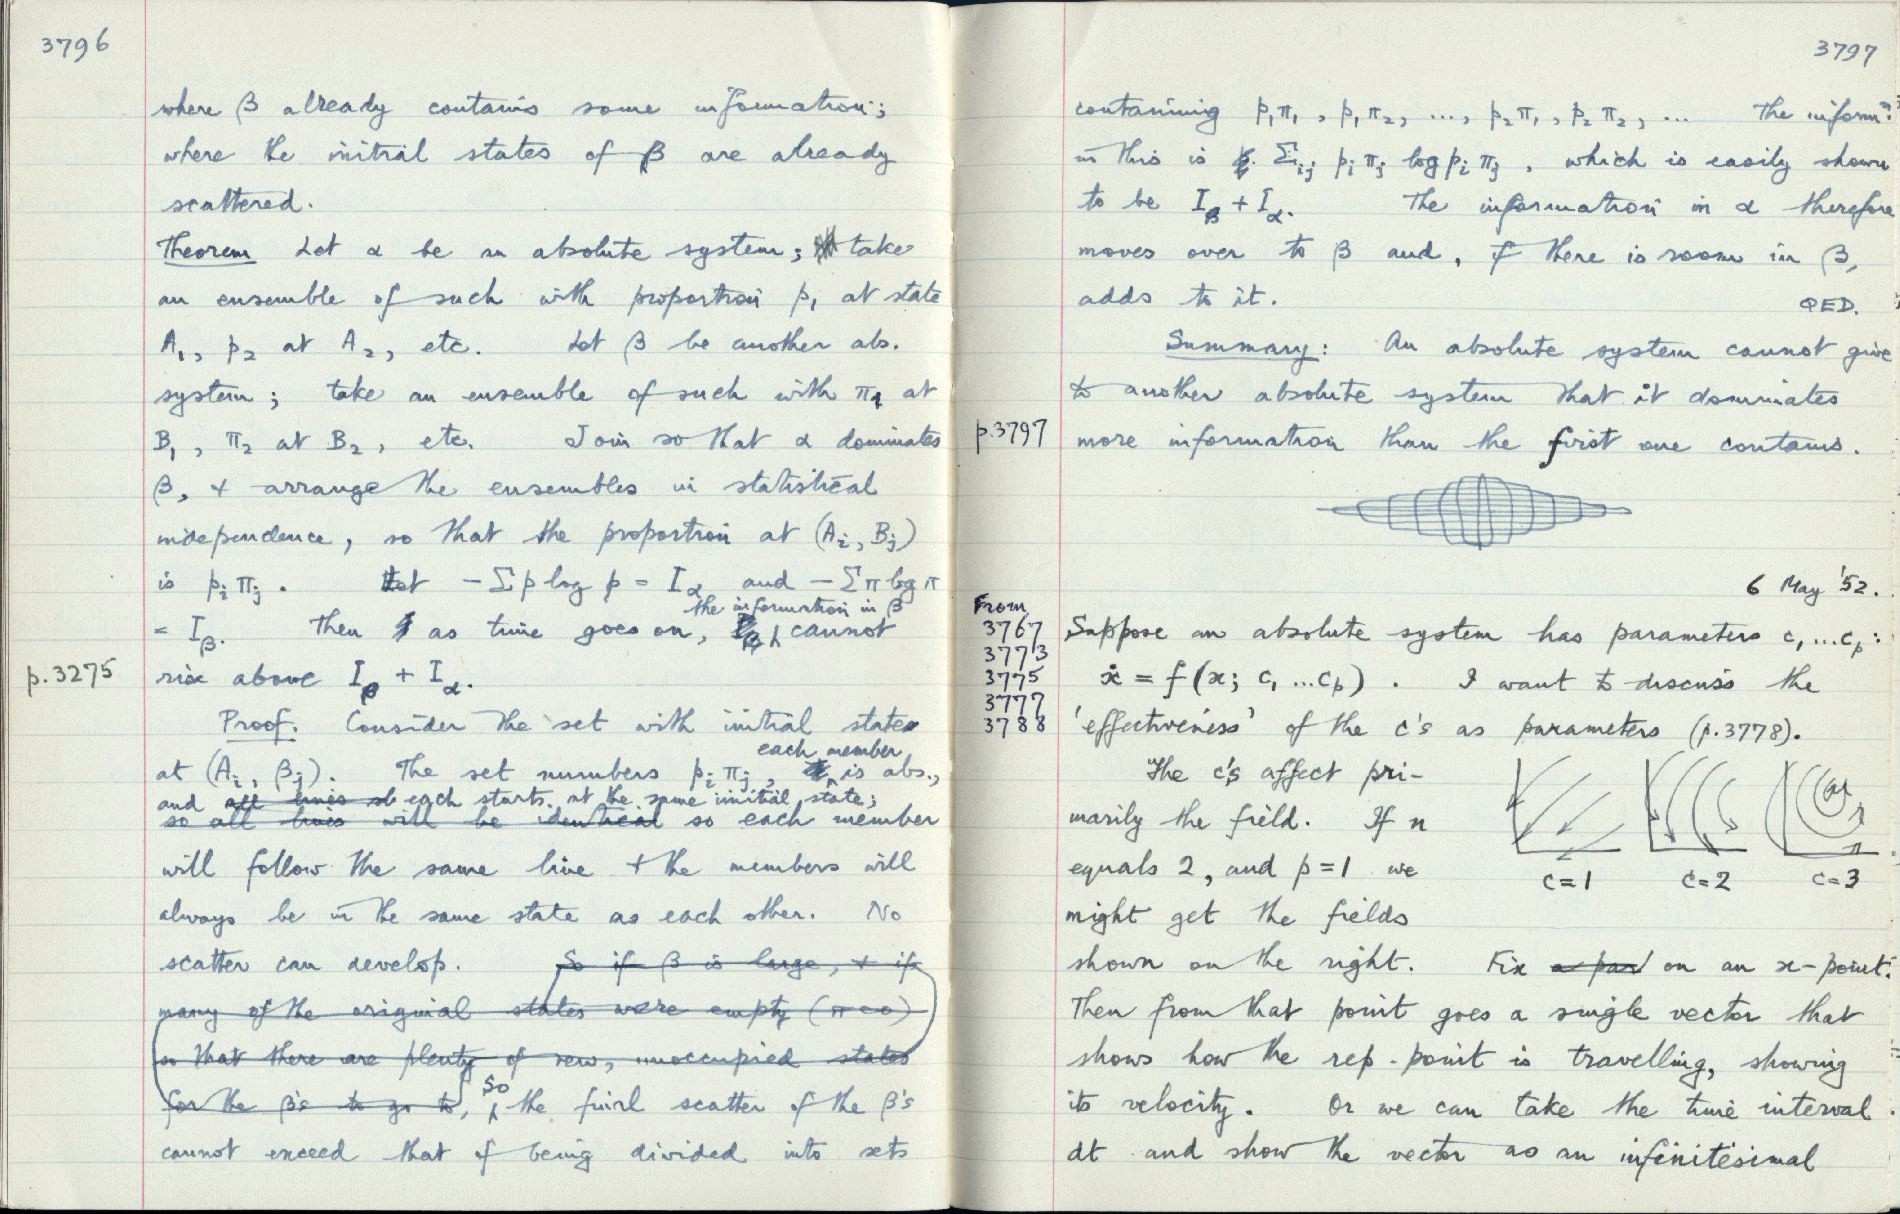 3796
where β already contains some information;
where the initial states of β are already
scattered.
Theorem Let α be an absolute system; take
an ensemble of such with proportion p₁ at state
A₁, p₂ at A₂, etc. Let β be another abs.
system; take an ensemble of such with π₁ at
B₁, π₂ at B₂, etc. Join so that α dominates
β, + arrange the ensembles in statistical
independence, so that the proportion at (Aᵢ, Bⱼ)
is pᵢ πⱼ. Let − Σ p log p = I_α and − Σ π log π
the information in β
= I_β. Then as time goes on, cannot
p.3275
rise above I_β + I_α.
Proof. Consider the set with initial states
each member
at (Aᵢ, βⱼ). The set numbers pᵢ πⱼ, is abs.,
and all lines sb each starts at the same initial state;
so all lines will be identical so each member
will follow the same line + the members will
always be in the same state as each other. No
scatter can develop. So if β is large, + if
many of the original states were empty (π=0)
so that there are plenty of new, unoccupied states
So
for the β's to go to, the final scatter of the β's
cannot exceed that of being divided into sets
3797
containing p₁π₁, p₁π₂, ..., p₂π₁, p₂π₂, ... The informⁿ
in this is Σᵢⱼ pᵢ πⱼ log pᵢ πⱼ, which is easily shown
to be I_β + I_α. The information in α therefore
moves over to β and, if there is room in β,
adds to it. QED.
Summary: An absolute system cannot give
to another absolute system that it dominates
p.3797
more information than the first one contains.
6 May '52.
From
3767
3773
3775
3777
3788
Suppose an absolute system has parameters c₁...cₚ:
ẋ = f(x; c₁...cₚ). I want to discuss the
'effectiveness' of the c's as parameters (p.3778).
The c's affect pri-
marily the field. If n
equals 2, and p=1 we
c=1 c=2 c=3
might get the fields
shown on the right. Fix a par on an x-point.
Then from that point goes a single vector that
shows how the rep-point is travelling, showing
its velocity. Or we can take the time interval
dt and show the vector as an infinitesimal